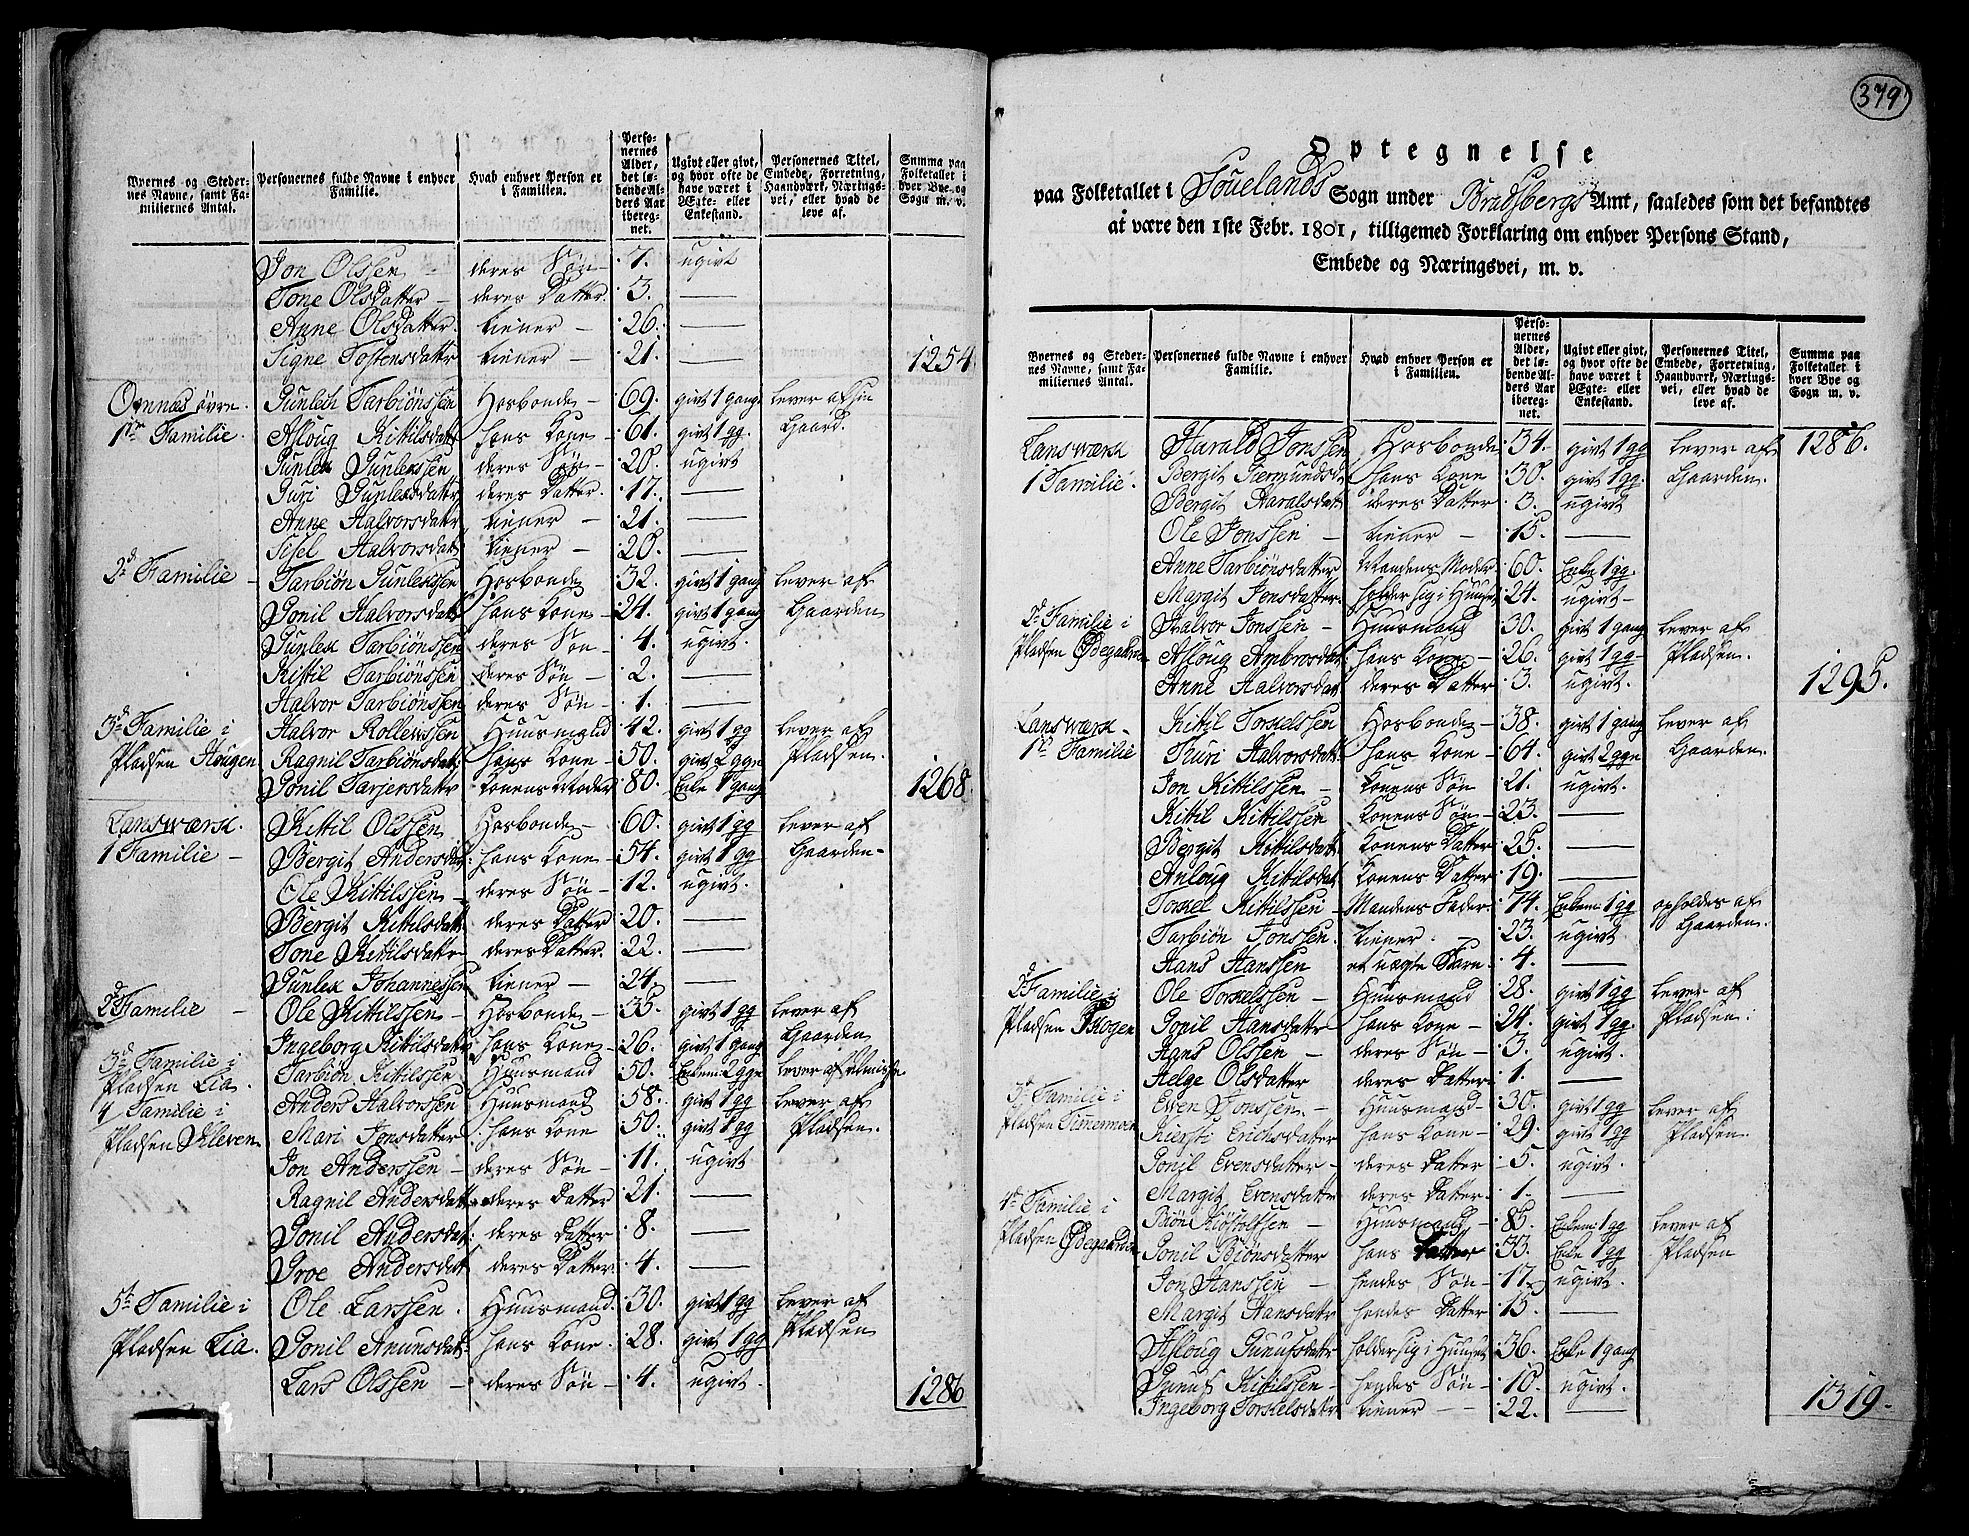 Byernes og Steder-
nes Navne, samt Fa-
miliernes Antal.
Personernes fulde Navne i enhver
Familie.
Hvad enhver Person er
i Familien.
Perso-
nernes
Alder,
det lø-
bende Al-
ders Aar
ibereg-
net.
Ugivt eller givt,
og hvor ofte de
have været i
Ægte- eller
Enkestand.
Personernes Titel,
Embede, Forretning,
Haandværk, Nærings-
vei, eller hvad de
leve af.
Summa paa
Folketallet i
hver Bye og
Sogn m. v.
Jon Olssen – deres Søn – 7. ugivt
Tone Olsdatter – deres Datter 3. —
Anne Olsdatter. tiener – 26. —
Signe Tostensdattr tiener – 21. — 1254
Omnæs øvre. Gunlech Tarbiønssen Hosbonde – 69. givt 1 gang lever af sin
1te Familie. Asloug Kittilsdattr hans Kone – 61. givt 1 gg. Gaard.
Gunlek Gunlekssen deres Søn – 20. ugivt
Guri Gunleksdattr deres Datter. 17. —
Anne Halvorsdattr tiener – 21. —
Sisel Halvorsdatt tiener – 20. —
2d Familie – Tarbiøn Gunlekssen Hosbonde 32. givt 1 gang lever af
Gonil Halvorsdatt hans Kone – 24. givt 1 gang Gaarden
Gunlek Tarbiønssen deres Søn – 4. ugivt.
Kittil Tarbiønssen deres Søn – 2. —
Halvor Tarbiønssen deres Søn – 1. —
3d Familie i Halvor Rollevssen Huusmand 42. givt 1 gg lever af
Pladsen Haugen Ragnil Tarbiønsdatt hans Kone – 50. givt 2 ggr Pladsen.
Gonil Tarjersdattr Konens Moder 80. Enke 1 gang 1268.
Lanswærk. Kittil Olssen Hosbonde – 60. givt 1 gg lever af
1 Familie – Bergit Andersdatt: hans Kone – 54. givt 1 gg Gaarden –
Ole Kittilssen – deres Søn – 12. ugivt.
Bergit Kittilsdatt deres Datter 20. —
Tone Kittilsdattr deres Datter. 22. —
Gunlek Johannessen tiener – 24. —
2d Familie – Ole Kittilssen – Hosbonde – 35. givt 1 gg lever af
Ingeborg Kittilsdatt hans Kone – 26. givt 1 gang Gaarden
3d Familie i Tarbiøn Kittilssen Huusmand 50. Enkem: 2 ggr lever af Almisse
Pladsen Lia.
4 Familie i Anders Halvorssen Huusmand 58. givt 1 gg lever af
Pladsen Kleven Mari Jonsdatter hans Kone 50. givt 1 gg Pladsen.
Jon Anderssen – deres Søn – 11. ugivt
Ragnil Andersdatt deres Datter 21. —
Gonil Andersdat: deres Datter 8. —
Groe Andersdat deres Datter. 4. —
5te Familie i Ole Larssen. Huusmand. 30. givt 1 gg lever af
Pladsen Lia. Gonil Anunsdat: hans Kone. 28. givt 1 gg Pladsen
Lars Olssen – deres Søn – 4. ugivt. 1286
379
Optegnelse
paa Folketallet i Souelands Sogn under Bradsbergs Amt, saaledes som det befandtes
at være den 1ste Febr. 1801, tilligemed Forklaring om enhver Persons Stand,
Embede og Næringsvei, m. v.
Byernes og Steder-
nes Navne, samt Fa-
miliernes Antal.
Personernes fulde Navne i enhver
Familie.
Hvad enhver Person er
i Familien.
Perso-
nernes
Alder,
det lø-
bende Al-
ders Aar
ibereg-
net.
Ugivt eller givt,
og hvor ofte de
have været i
Ægte- eller
Enkestand.
Personernes Titel,
Embede, Forretning,
Haandværk, Nærings-
vei, eller hvad de
leve af.
Summa paa
Folketallet i
hver Bye og
Sogn m. v.
Lanswærk Harald Jonssen Hosbonde 34. givt 1 gg lever af 1286.
1 Familie. Bergit Giermundsd: hans Kone 30. givt 1 gg. Gaarden.
Bergit Haralsdatt deres Datter 3. ugivt
Ole Jonssen – tiener – 15. —
Anne Tarbiønsdatter Mandens Moder 60. Enke 1 gg.
Margit Jonsdatter. holder sig i Huuset 24. ugivt –
2d Familie i Halvor Jonssen – Huusmand 30. givt 1 gang lever af
Pladsen Ødegaarden Asloug Ambrosdat: hans Kone – 26. givt 1 gg – Pladsen.
Anne Halvorsdat deres Datter 3. ugivt. 1295.
Lanswærk – Kittil Torkelssen Hosbonde – 38. givt 1 gang lever af
1te Familie Thuri Halvorsdatt hans Kone – 64. givt 2 ggr Gaarden.
Jon Kittilssen – Konens Søn 21. ugivt.
Kittil Kittilssen Konens Søn – 23. —
Bergit Kittilsdatt Konens Datter 25. —
Anloug Kittilsdat Konens Datter 19. —
Torkel Kittilssen – Mandens Fader 74. Enkem: 1 gg opholdes af
Tarbiøn Jonssen. tiener. – 23. ugivt Gaarden.
Hans Hanssen et uægte Barn 4. —
2d Familie i Ole Torkelssen – Huusmand 28. givt 1 gg lever af
Pladsen Skogen Gonil Hansdattr hans Kone – 24. givt 1 gg. Pladsen.
Hans Olssen – deres Søn – 3. ugivt.
Helge Olsdatter deres Datter 1. —
3d Familie i Even Jonssen. – Huusmand 30. givt 1 gg lever af
Pladsen Timermoen Kiersti Erichsdatter hans Kone – 29. givt 1 gg Pladsen.
Gonil Evensdatter – deres Datter – 5. ugivt.
Margit Evensdattr deres Datter. 1. —
4de Familie i Biøn Kiøstolfsen – Huusmand 85. Enkem: 1 gg lever af
Pladsen Ødegaarden Gonil Biønsdatter hans Datter 33. Enke 1 gg Pladsen
Jon Hanssen – hendes Søn – 17. ugivt.
Margit Hansdattr hendes Datter 15. —
Asloug Gunufsdattr holder sig i Huuset 36. Enke 1 gang
Gunuf Kittilssen – hendes Søn – 10. ugivt.
Ingeborg Torkelsdattr tiener – 22. — 1319.